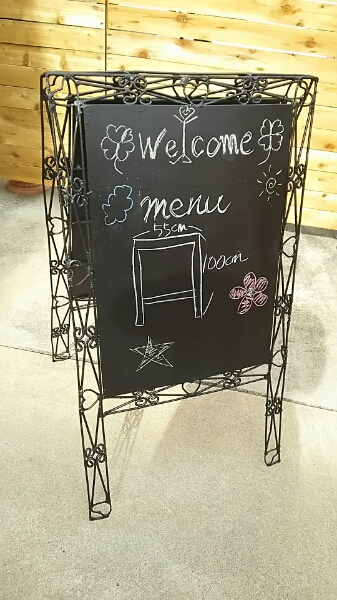 Welcome
menu
55cm
100cm